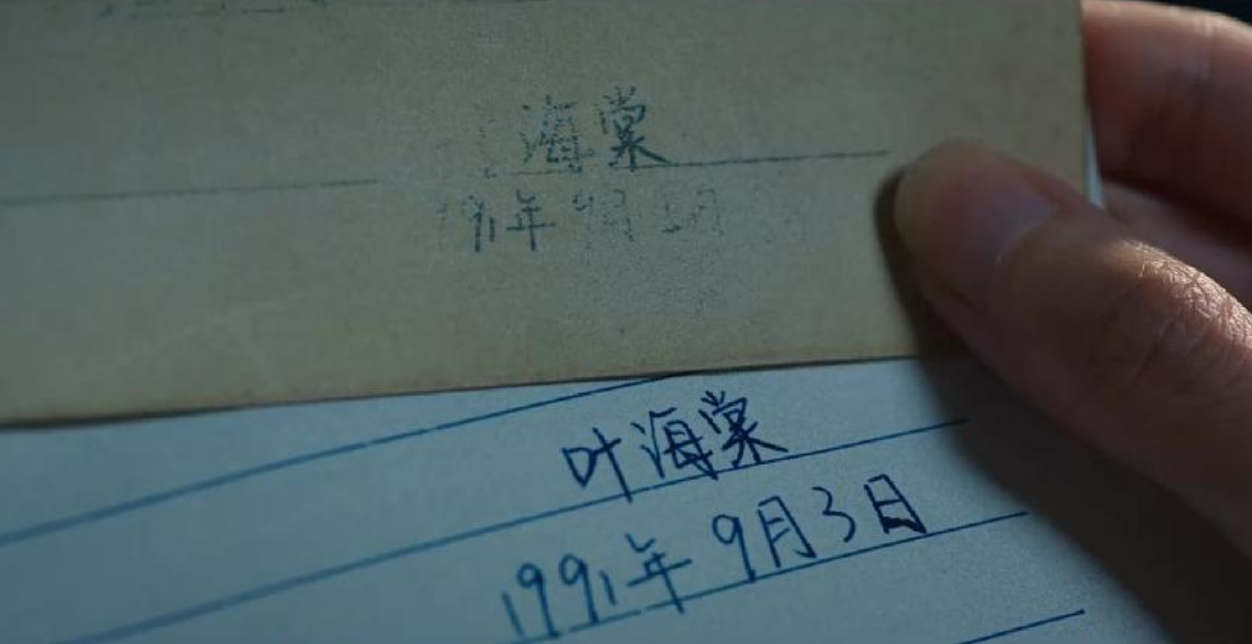 海棠
91年9月3日
叶海棠
1991年9月3日